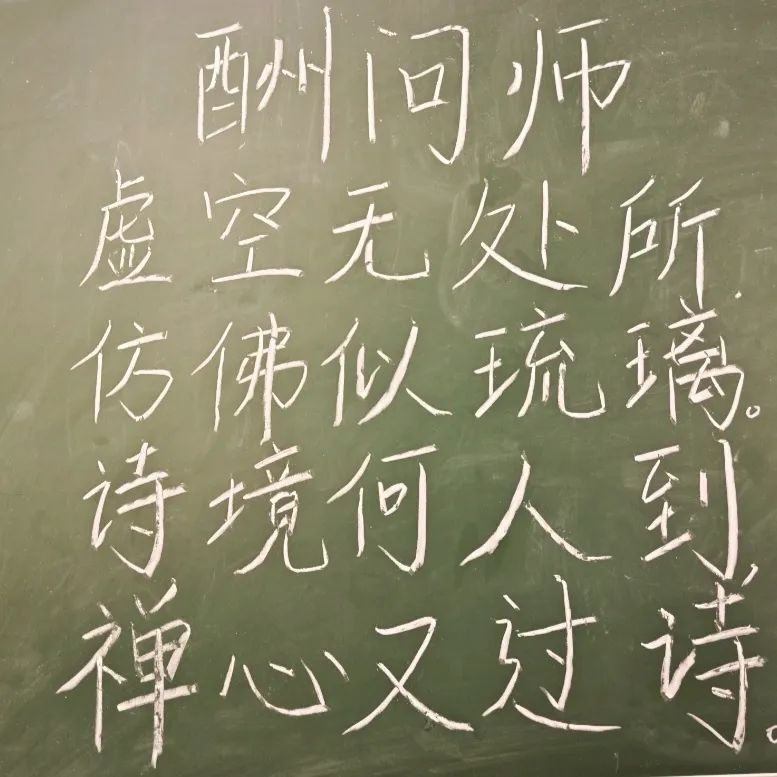 酬问师
虚空无处所,
仿佛似琉璃。
诗境何人到,
禅心又过诗。